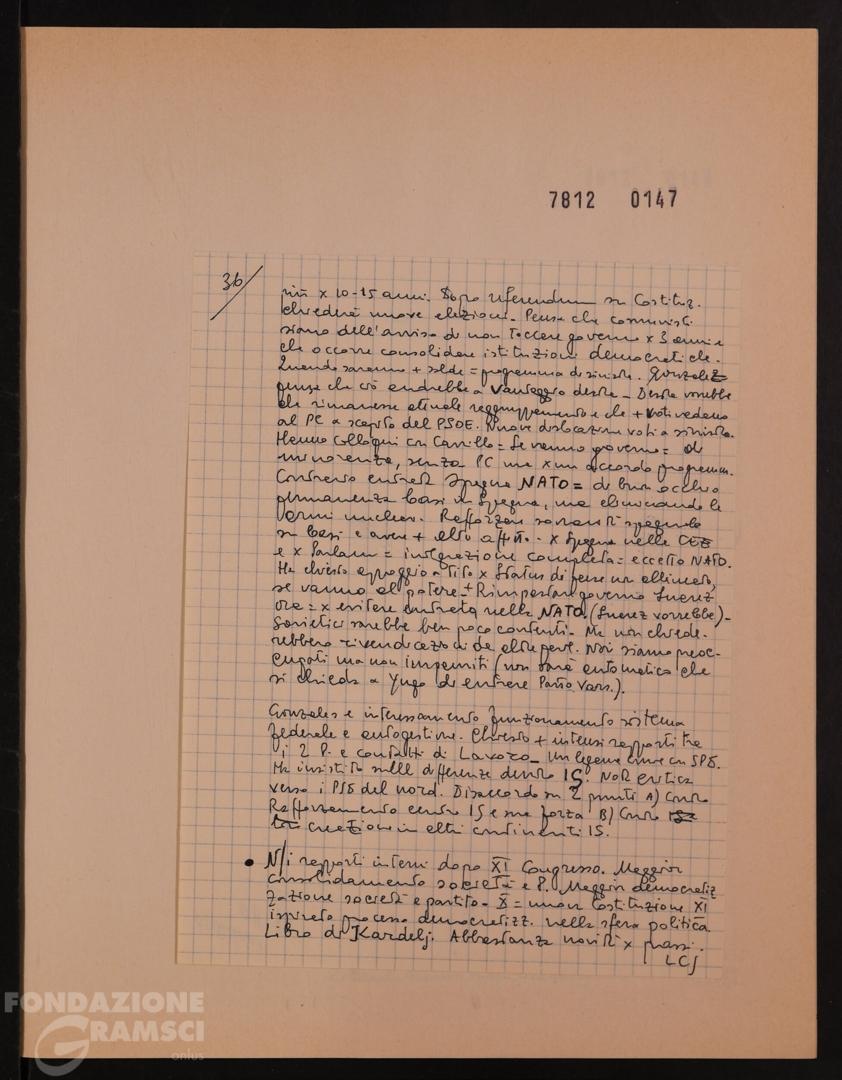 7812 0147
36/
più x 10-15 anni. Dopo referendum su Costituz.
chiederà nuove elezioni. Pensa che comunisti
siano dell'avviso di non toccare governo x 3 anni e
che occorre consolidare istituzioni democratiche.
Quando saranno + salde = programma di sinistra. Gonzalez
pensa che ciò andrebbe a vantaggio destra - Destra vorrebbe
che rimanesse attuale raggruppamento e che + voti vadano
al PC a scapito del PSOE. Nuova dislocazione voti a sinistra.
Hanno colloqui con Carrillo = Se vanno governo = di
minoranza, senza PC ma x un accordo programm.
Contrario entrata Spagna NATO = di buon occhio
permanenza basi in Spagna, ma eliminando le
armi nuclear. Rafforzare sovranità spagnola
su basi e avere + alto affitto. x Spagna nella CEE
e x Parlam = integrazione completa = eccetto NATO.
Ha chiesto appoggio a Tito x Status di paese non allineato,
se vanno al potere. + Rimportan governo Suarez
ora = x evitare entrata nella NATO. (Suarez vorrebbe) -
Sovietici sarebbe ben poco contenti. Ma non chiede-
rebbero rivendicazioni da altre part. Noi siamo preoc-
cupati ma non impauriti (non sarà automatico che
si chieda a Yugo di entrare Patto Vars.).
Gonzales e interessamento funzionamento sistema
federale e autogestione. Chiesto + intensi rapporti tra
i 2 P. e contatti di Lavoro - Un legame anche con SPD.
Ha insistito sulle differenze dentro IS. Note critica
verso i PSD del nord. Disaccordo su 2 punti A) Contro
Rafforzamento centro IS e sua forza B) Contro
creazione in altri continenti IS.
• N/i rapporti interni dopo XI Congresso. Maggior
consolidamento società e P. Maggior democratiz
zazione società e partito - X = nuova Costituzione XI
ispirato processo democratizz. nella sfera politica
Libro di Kardelj. Abbastanza novità x prassi.
LCJ
FONDAZIONE
GRAMSCI
onlus